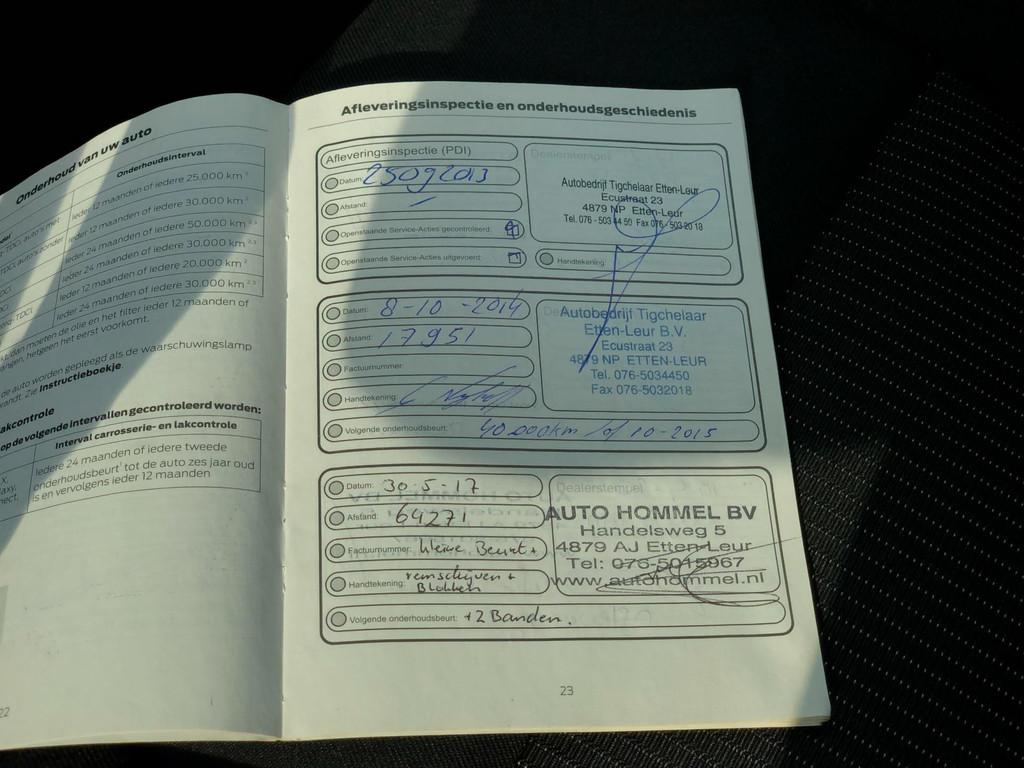 Onderhoud van uw auto
Onderhoudsinterval
Ieder 12 maanden of iedere 25.000 km
Ieder 12 maanden of iedere 30.000 km
Ieder 24 maanden of iedere 50.000 km 2,3
Ieder 24 maanden of iedere 30.000 km 2,3
Ieder 12 maanden of iedere 20.000 km 2
Ieder 24 maanden of iedere 30.000 km 2,3
dan moeten de olie en het filter ieder 12 maanden of
hetgeen het eerst voorkomt.
de auto worden gepleegd als de waarschuwingslamp
Zie Instructieboekje.
lakcontrole
op de volgende intervallen gecontroleerd worden:
Interval carrosserie- en lakcontrole
Iedere 24 maanden of iedere tweede
onderhoudsbeurt¹ tot de auto zes jaar oud
is en vervolgens ieder 12 maanden
22
Afleveringsinspectie en onderhoudsgeschiedenis
Afleveringsinspectie (PDI)
Datum: 25092013
Afstand:
Openstaande Service-Acties gecontroleerd:
Openstaande Service-Acties uitgevoerd:
Dealerstempel
Autobedrijf Tigchelaar Etten-Leur
Ecustraat 23
4879 NP Etten-Leur
Tel. 076 - 503 44 50 Fax 076 - 503 20 18
Handtekening:
Datum: 8-10-2014
Afstand: 17951
Factuurnummer:
Handtekening:
Volgende onderhoudsbeurt: 40.000km of 10-2015
Autobedrijf Tigchelaar
Etten-Leur B.V.
Ecustraat 23
4879 NP ETTEN-LEUR
Tel. 076-5034450
Fax 076-5032018
Datum: 30-5-17
Afstand: 64271
Factuurnummer: kleine Beurt +
Handtekening: remschijven +
Blokken
Volgende onderhoudsbeurt: +2 Banden.
Dealerstempel
AUTO HOMMEL BV
Handelsweg 5
4879 AJ Etten-Leur
Tel: 076-5015967
www.autohommel.nl
23